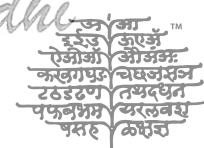 dhe
अ आ ™
इ ई उ ऊ ए ऍ
ऐ ओ औ अं अः
क ख ग घ ङ च छ ज झ ञ
ट ठ ड ढ ण त थ द ध न
प फ ब भ म य र ल व श
ष स ह ळ क्ष ज्ञ